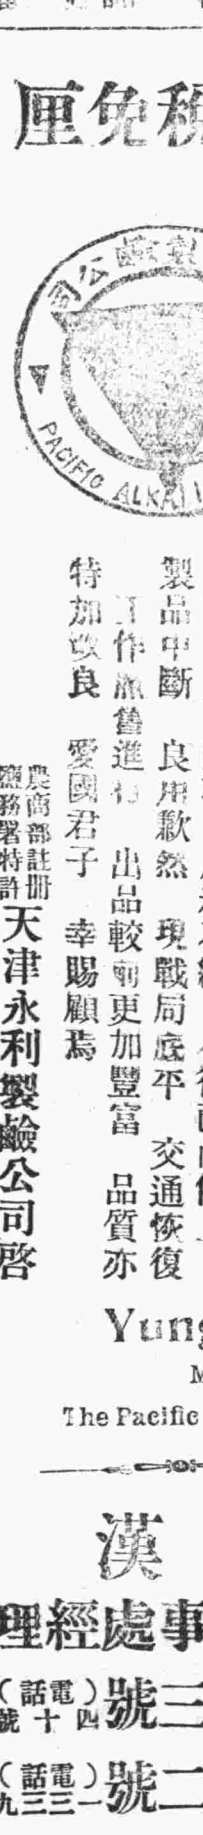 稅免厘
製鹼公司
PACIFIC ALKALI
製品中斷 良用歉然 現戰局底平 交通恢復
工作照舊進行 出品較前更加豐富 品質亦
特加改良 愛國君子 幸賜顧焉
農商部註冊
鹽務署特許
天津永利製鹼公司啓
Yung
The Pacific
漢
事處經理
三號（電話四十號
二號（電話）一三三九